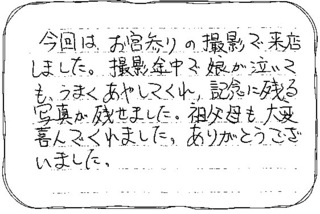 今回は お宮参りの撮影で来店
しました。撮影途中で娘が泣いて
も、うまくあやしてくれ、記念に残る
写真が残せました。祖父母も大変
喜んでくれました。ありがとうござ
いました。